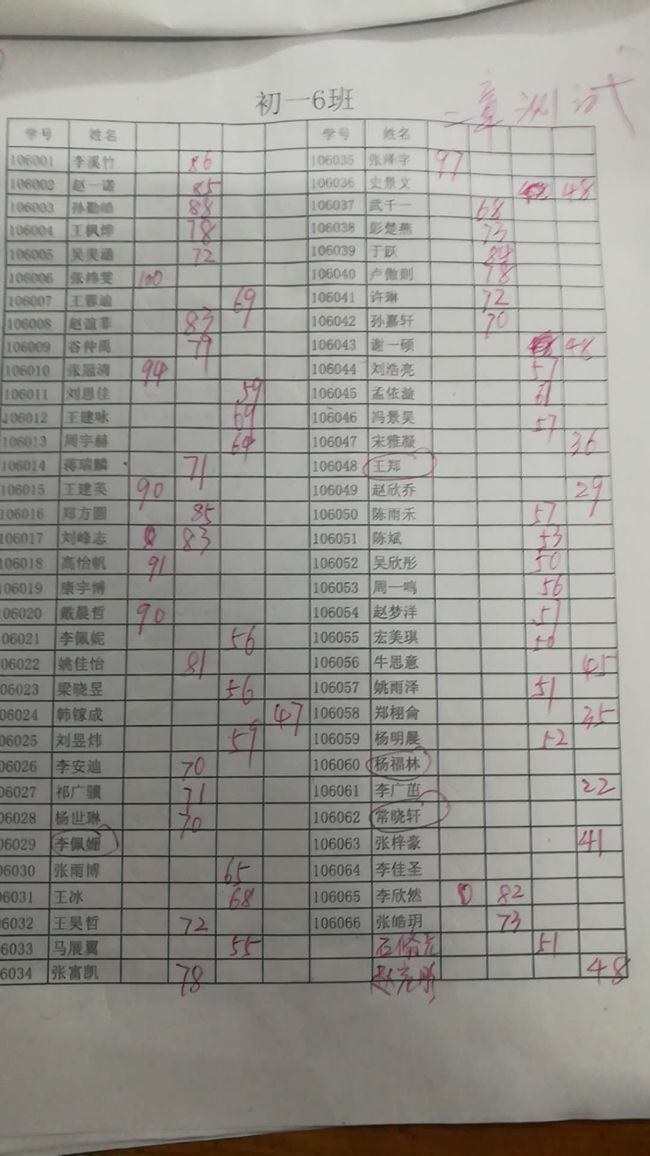 初一6班 二章测试
学号 姓名 学号 姓名
106001 李溪竹 86 106035 张泽宇 97
106002 赵一诺 85 106036 史景文 48
106003 孙勤皓 88 106037 武千一 68
106004 王枫烨 78 106038 彭楚燕 73
106005 吴美涵 72 106039 于跃 84
106006 张祎雯 100 106040 卢傲则 78
106007 王蓉迪 69 106041 许琳 72
106008 赵谊菲 83 106042 孙嘉轩 70
106009 谷仲禹 79 106043 谢一硕 48
106010 张冠清 94 106044 刘浩亮 57
106011 刘思佳 59 106045 孟依漩 61
106012 王建咏 69 106046 冯景昊 57
106013 周宇赫 64 106047 宋雅凝 36
106014 蒋瑞麟 71 106048 王郑
106015 王建英 90 106049 赵欣乔 29
106016 郑方圆 85 106050 陈雨禾 57
106017 刘峰志 83 106051 陈斌 53
106018 高怡帆 91 106052 吴欣彤 50
106019 康宇博 106053 周一鸣 56
06020 戴晨哲 90 106054 赵梦洋 57
06021 李佩妮 56 106055 宏美琪 50
06022 姚佳怡 81 106056 牛思意 45
06023 梁晓昱 56 106057 姚雨泽 51
06024 韩镓成 47 106058 郑栩侖 35
06025 刘昱炜 59 106059 杨明晨 52
06026 李安迪 70 106060 杨福林
06027 祁广骥 71 106061 李广茁 22
06028 杨世琳 70 106062 常晓轩
06029 李佩姗 106063 张梓豪 41
06030 张雨博 65 106064 李佳圣
06031 王冰 68 106065 李欣然 82
06032 王昊哲 72 106066 张皓玥 73
06033 马展翼 55 51
06034 张富凯 78 48